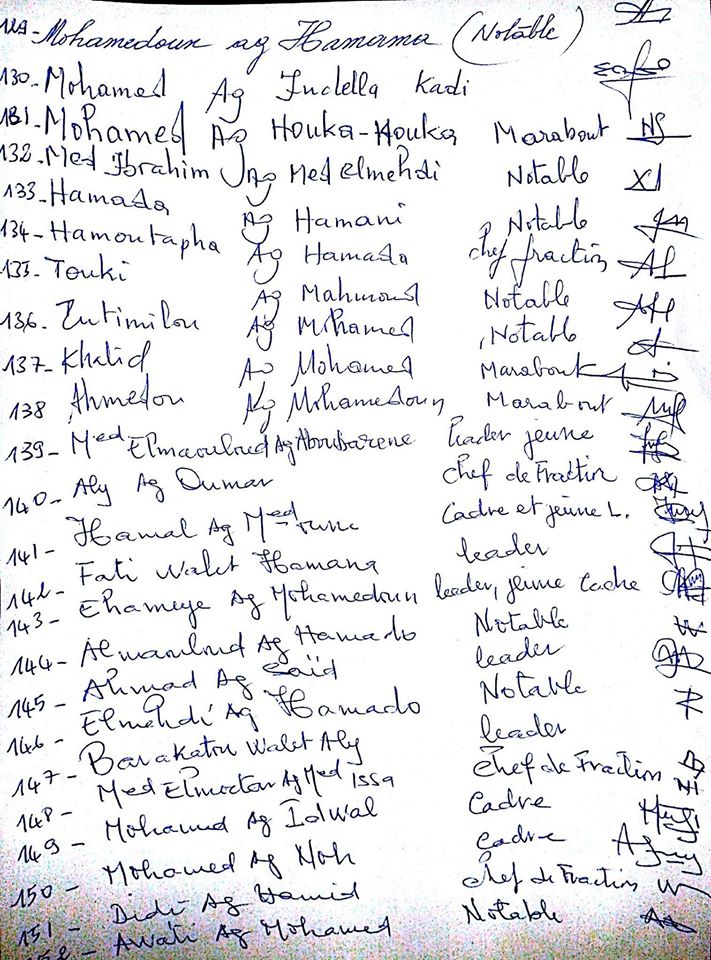 129- Mohamedoun ag Hamama (Notable)
130- Mohamed Ag Indella Kadi
131- Mohamed Ag Houka-Houka Marabout
132- Med Ibrahim Ag Med Elmehdi Notable
133- Hamada Ag Hamani Notable
134- Hamoutapha Ag Hamada chef fraction
135- Touki Ag Mahmoud Notable
136- Intimilou Ag Mohamed Notable
137- Khalid Ag Mohamed Marabout
138 Ahmedou Ag Mohamedoun Marabout
139- Med Elmaouloud Ag Aboubarene leader jeune
140- Aly Ag Oumar chef de Fraction
141- Hamal Ag Med Cadre et jeune L.
142- Fati Walet Hamana leader
143- Ehameye Ag Mohamedoun leader, jeune Cadre
144- Almaouloud Ag Hamado Notable
145- Ahmad Ag Saïd leader
146- Elmehdi Ag Hamado Notable
147- Barakatou Walet Aly leader
148- Med Elmoctar Ag Med Issa chef de Fraction
149- Mohamed Ag Idwal Cadre
150- Mohamed Ag Noh Cadre
151- Didi Ag Hamid chef de Fraction
152- Awati Ag Mohamed Notable